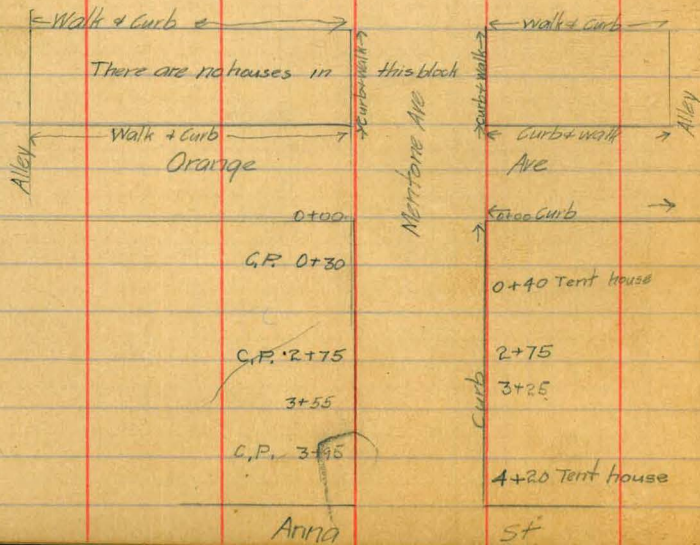 Walk & Curb
Walk & Curb
There are no houses in this block
Curb & walk
Curb & walk
Alley
Walk & Curb
Curb & walk
Alley
Orange Ave
Mentone Ave
0+00
0+00 Curb
C.P. 0+30
0+40 Tent house
C.P. 2+75
2+75
3+55
3+25
Curb
C.P. 3+95
4+20 Tent house
Anna St